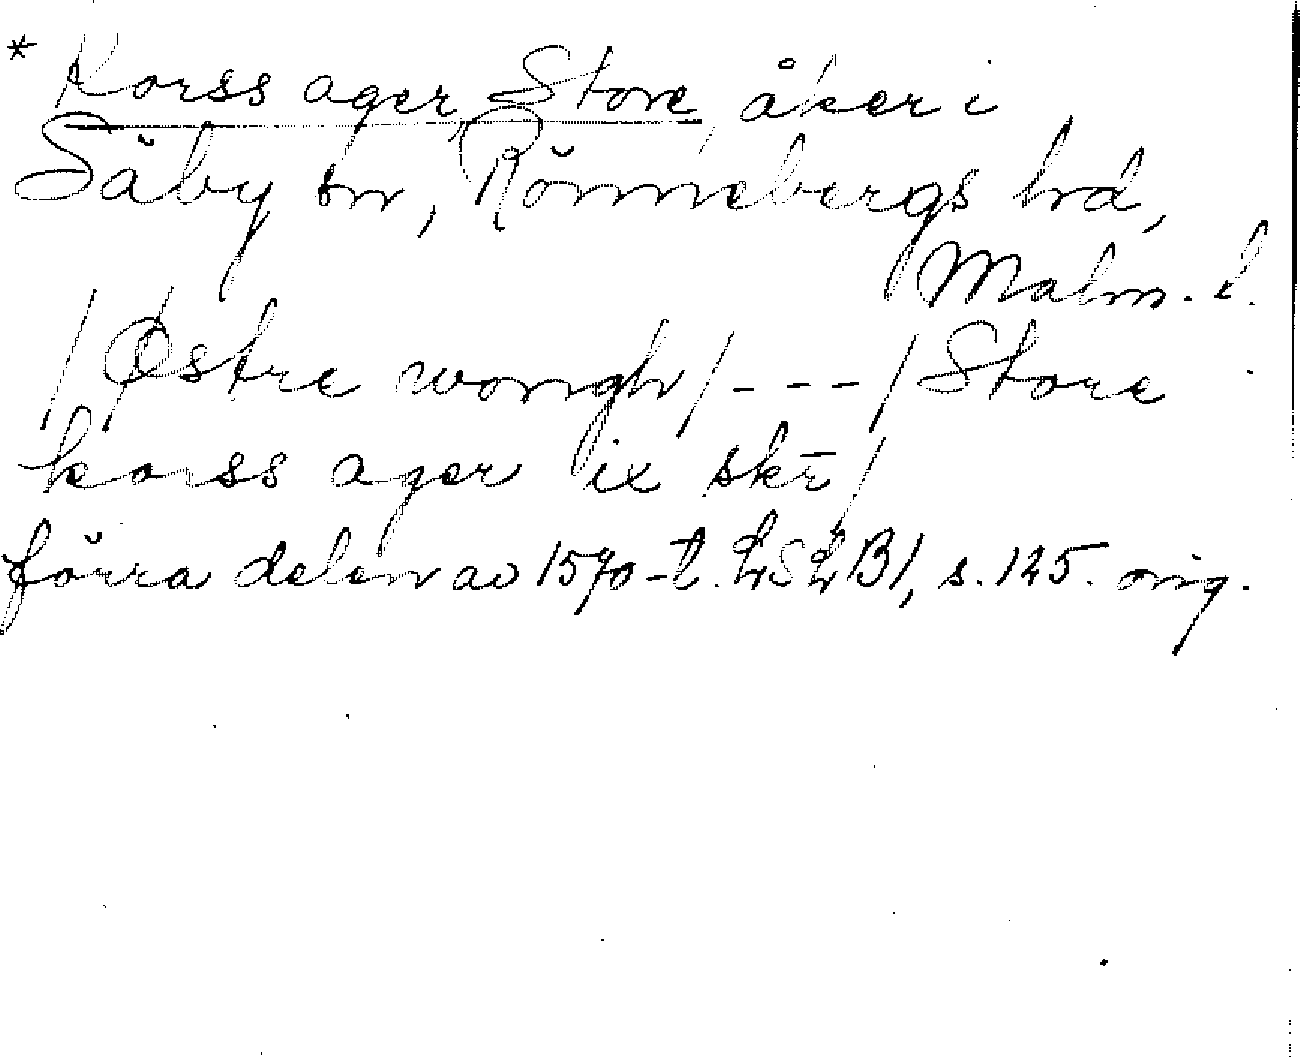 * Korss ager, Store, åker i
Säby sn, Rönnebergs hd,
Malm. l.
/Østre wongh/---/Store
korss ager ix skr̄/
förra delen av 1570-t. LSLB1, s. 125. orig.